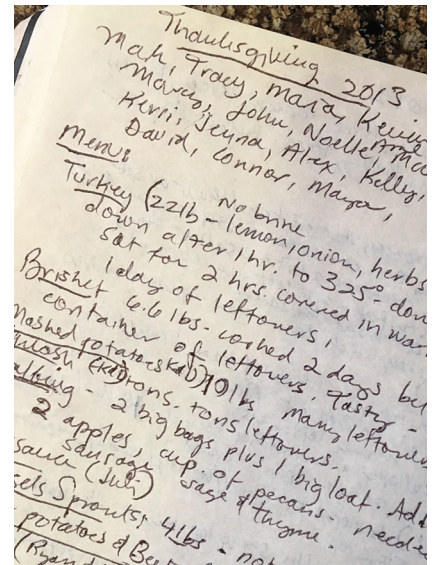 Thanksgiving 2013
Matt, Tracy, Maria, Kevin
Marco, John, Noelle,
Kerri, Jenna, Alex, Kelly,
David, Connor, Maya,
Menu:
No brine
Turkey (22lb - lemon, onion, herbs
down after 1 hr. to 325° - don
Sat for 2 hrs. covered in wa
1 day of leftovers,
Brisket 6.6 lbs. - corned 2 days
container of leftovers. Tasty -
Mashed potatoes 10 lbs many leftover
tons, tons leftovers.
- 2 big bags plus 1 big loaf. Ad
2 apples, cup of pecans - neede
sausage sage & thyme.
sauce
Sprouts, 4 lbs - no
potatoes &
(Ryan